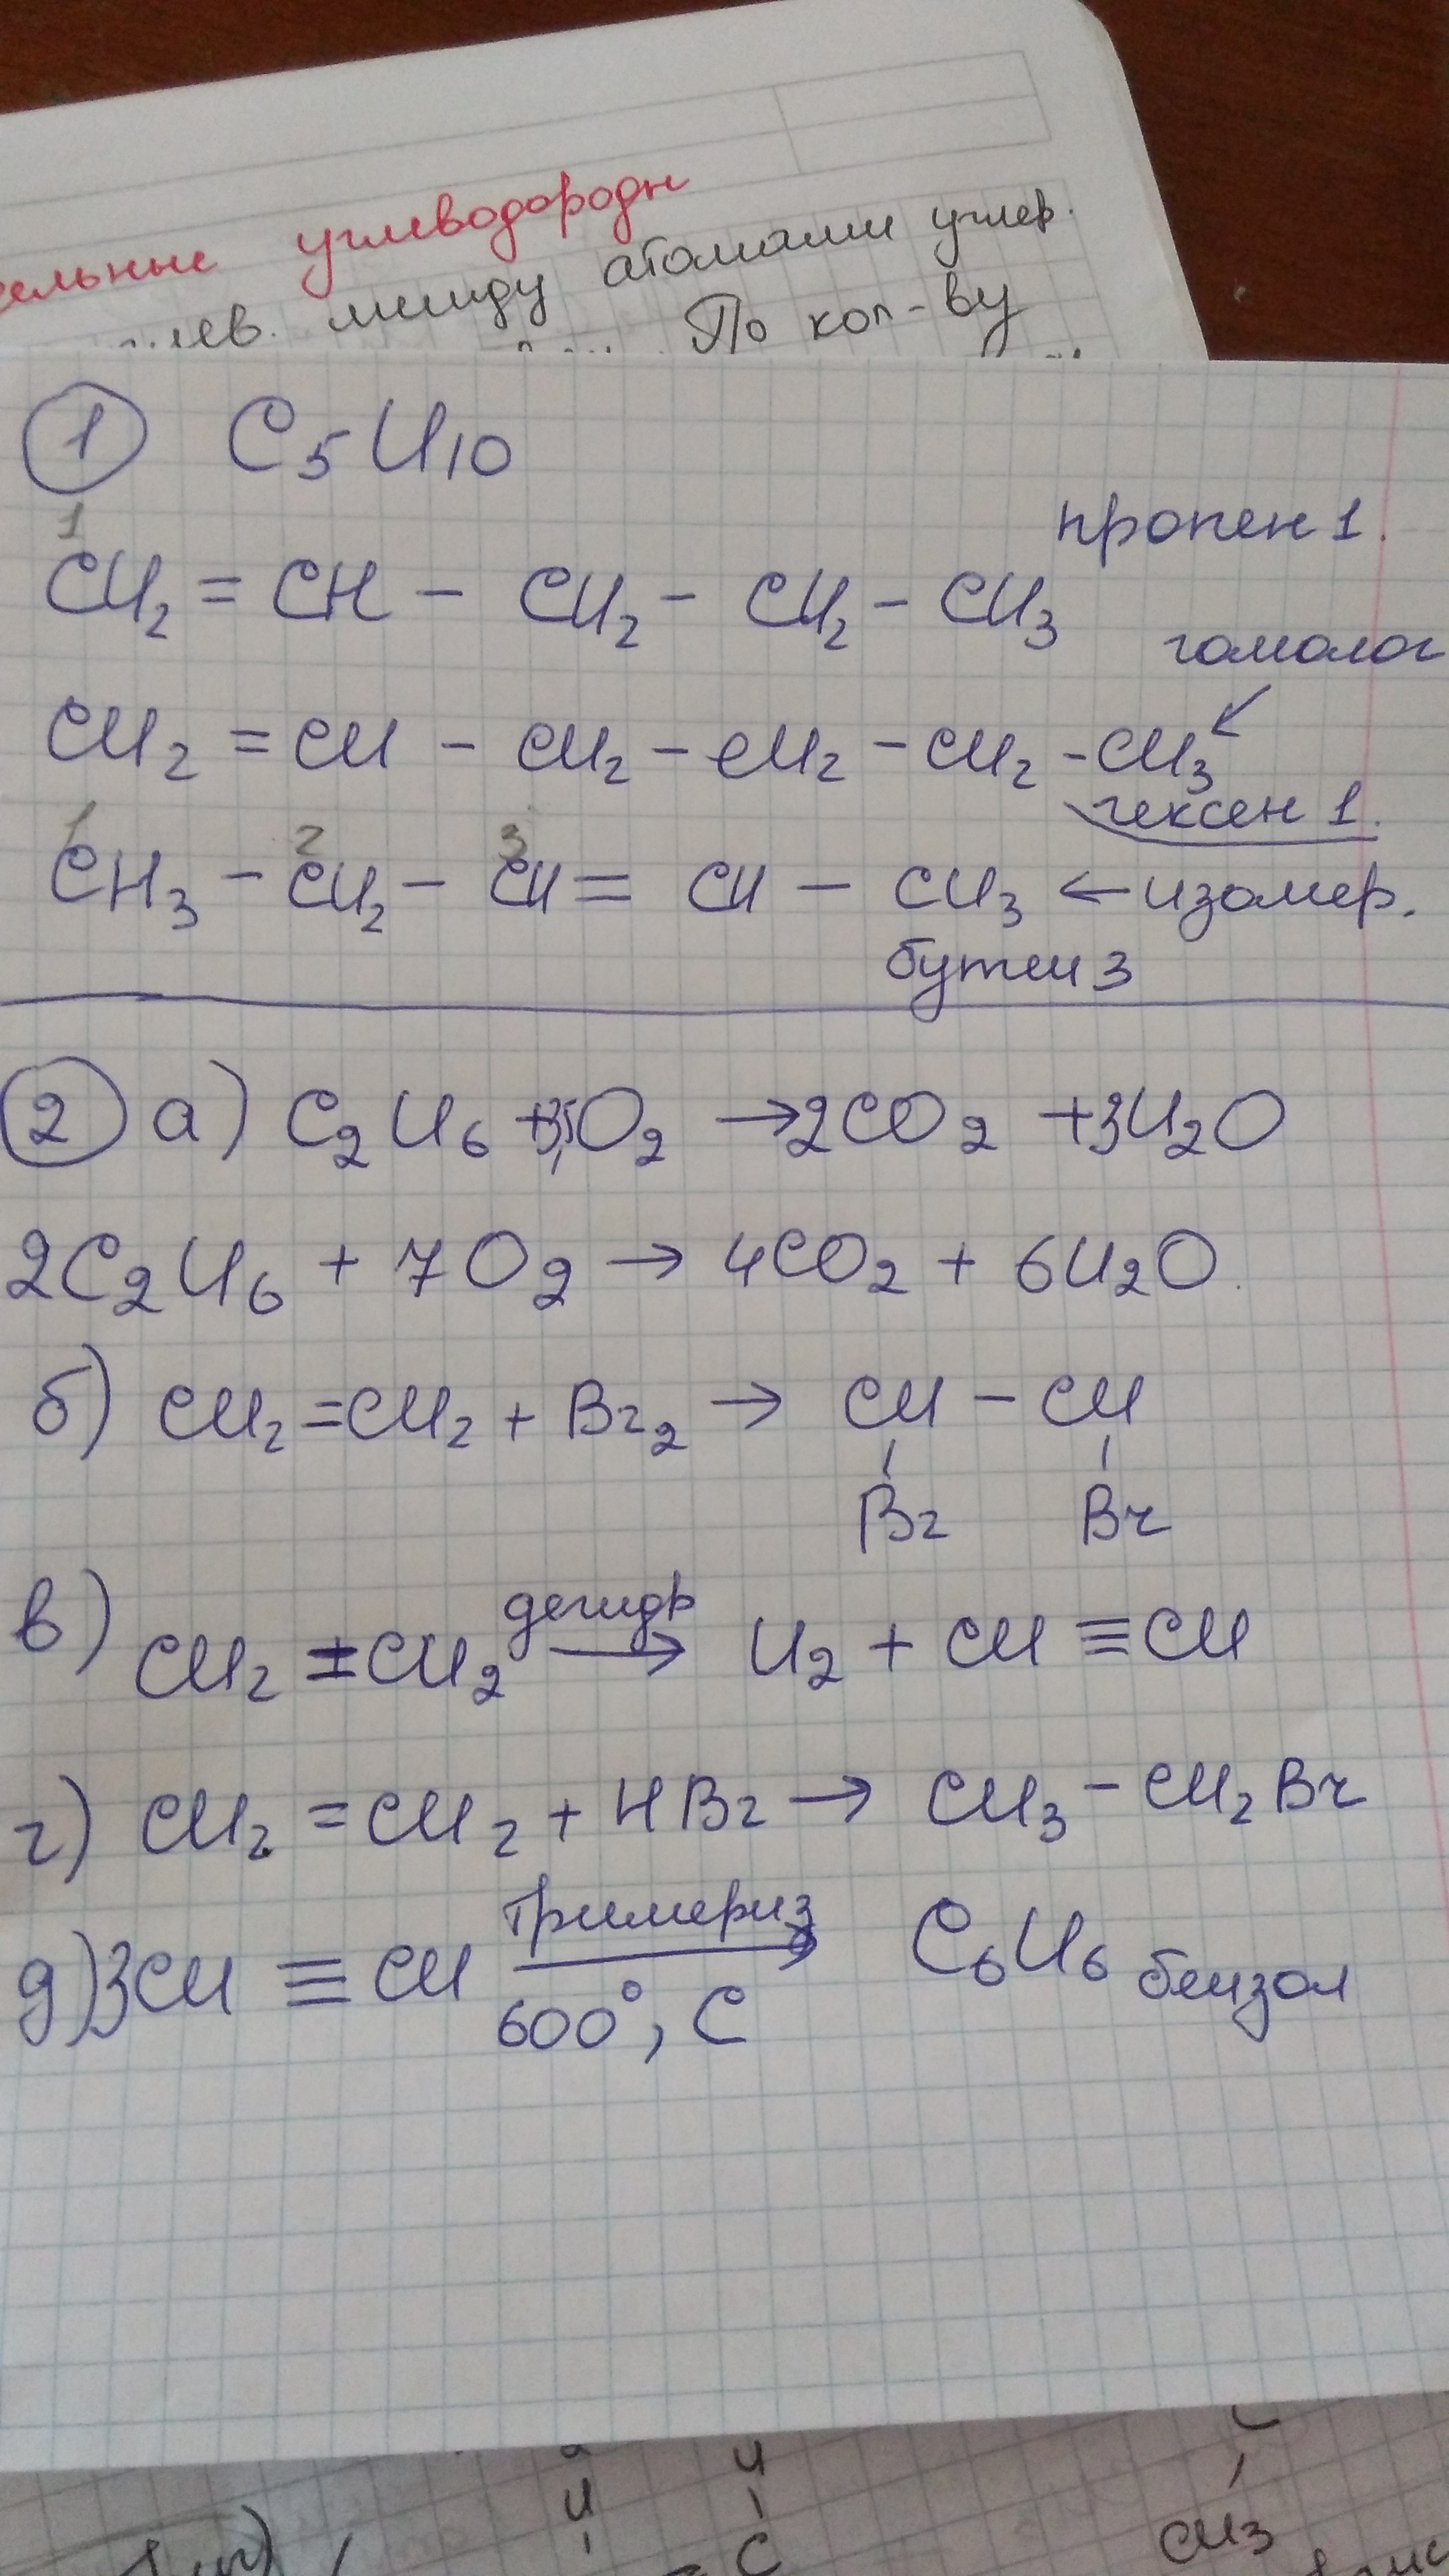 ельные углеводороды
между атомами углер.
По кол-ву
① C₅H₁₀
пропен 1.
1
CH₂ = CH – CH₂ – CH₂ – CH₃
гомолог
↙
CH₂ = CH – CH₂ – CH₂ – CH₂ – CH₃
гексен 1.
1 2 3
CH₃ – CH₂ – CH = CH – CH₃ ← изомер.
бутен 3
② а) C₂H₆ + 3,5O₂ → 2CO₂ + 3H₂O
2C₂H₆ + 7O₂ → 4CO₂ + 6H₂O.
б) CH₂ = CH₂ + Br₂ → CH – CH
Br Br
в) CH₂ = CH₂ дегидр → H₂ + CH ≡ CH
г) CH₂ = CH₂ + HBr → CH₃ – CH₂Br
тримериз
д) 3CH ≡ CH → C₆H₆ бензол
600°, C
H
H
C
CH₃